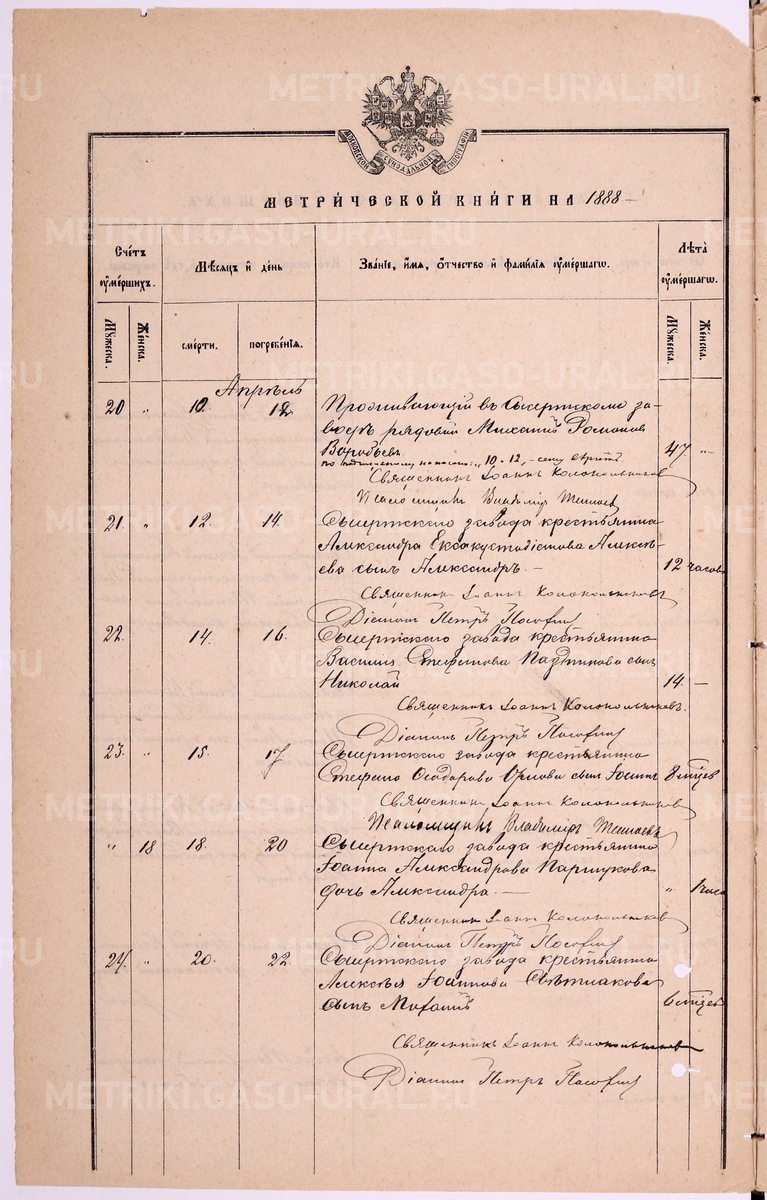 METRIKI.GASO-URAL.RU
МОСКОВСКОЙ СѴНОДАЛЬНОЙ ТИПОГРАФІИ
МЕТРИ́ЧЕСКОЙ КНИ́ГИ НА 1888
Сче́тъ ᲂу҆ме́ршихъ.
Мѣ́сяцъ и҆ де́нь
Зва́нїе, и҆́мя, ѻ҆́тчество и҆ фамѝлїя ᲂу҆ме́ршагѡ.
Лѣ́та ᲂу҆ме́ршагѡ.
Мꙋ́жеска.
Же́нска.
сме́рти.
погребе́нїя.
Мꙋ́жеска.
Же́нска.
Апрѣль
20 " 10 12 Проживающій въ Сысертскомъ за-
водѣ рядовой Михаилъ Романов
Воробьевъ 47 "
10-12,
Священникъ Іоаннъ Колокольников
Псаломщикъ Владиміръ
21. " 12. 14. Сысертскаго завода крестьянина
Александра Алексѣ-
ева сынъ Александръ. — 12 часовъ
Священникъ Іоаннъ Колокольниковъ
Діаконъ Петръ
22. " 14. 16. Сысертскаго завода крестьянина
Василія Стефанова сынъ
Николай 14 —
Священникъ Іоаннъ Колокольниковъ.
Діаконъ Петръ
23. " 15. 17 Сысертскаго завода крестьянина
Стефана Ѳеодорова Орлова сынъ Іоаннъ 8 мцев
Священникъ Іоаннъ Колокольников
Псаломщикъ Владиміръ
" 18 18. 20 Сысертскаго завода крестьянина
Іоанна Александрова Паршукова
дочь Александра. — " 1 часа
Священник Іоаннъ Колокольников
Діаконъ Петръ
24. " 20. 22. Сысертскаго завода крестьянина
Алексѣя Іоаннова
сынъ Михаилъ 6 мцев
Священникъ Іоаннъ Колокольников
Діаконъ Петръ